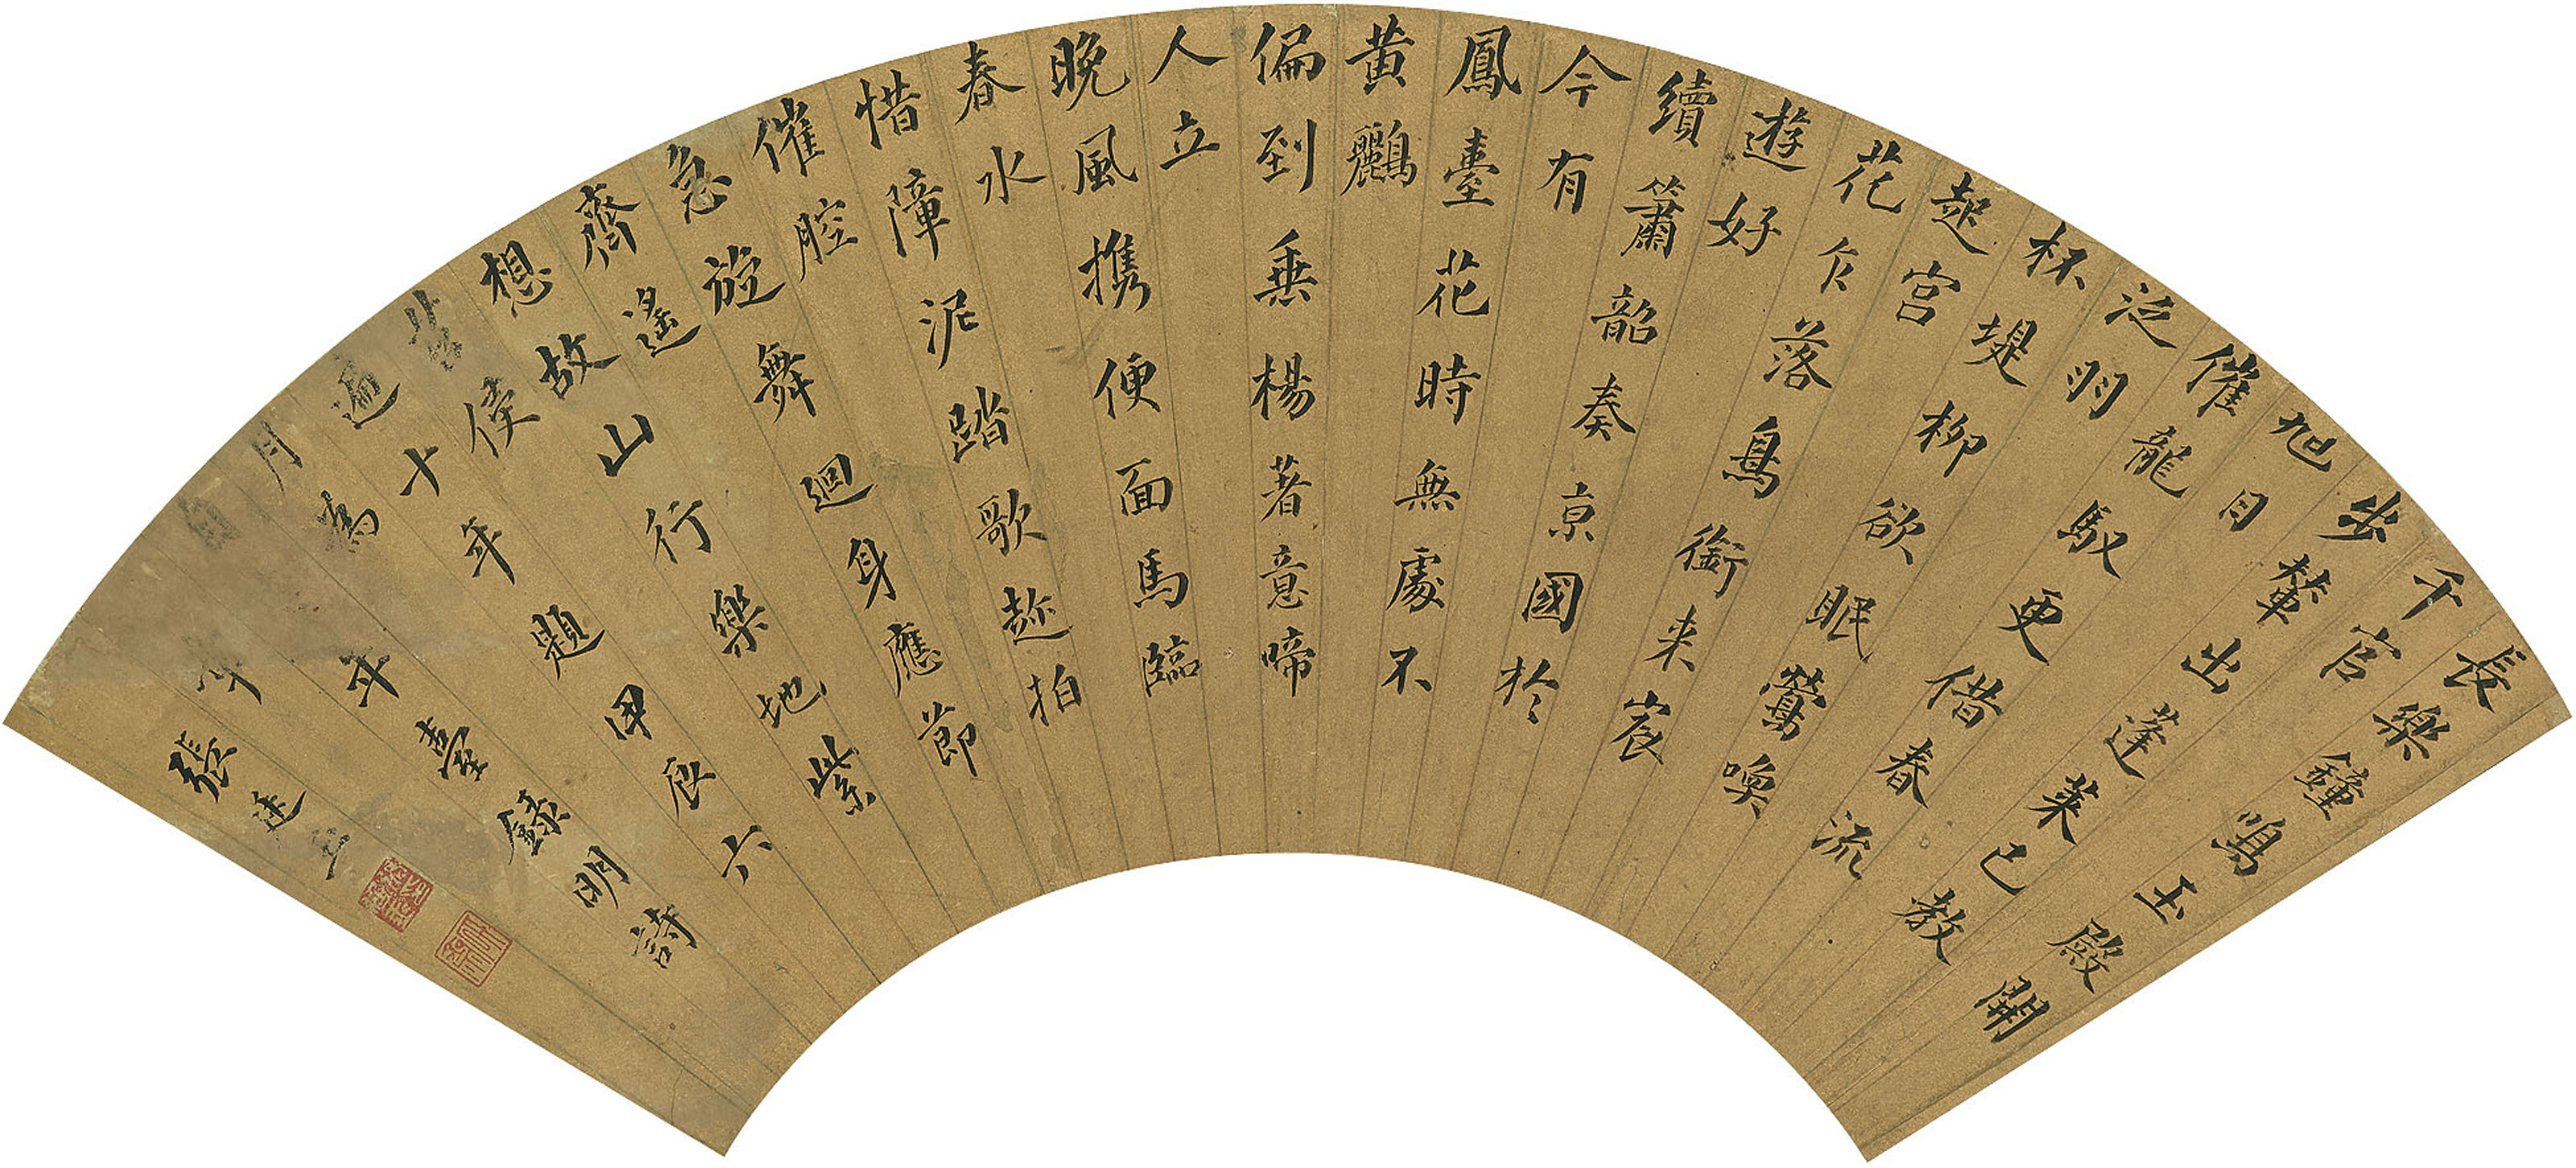 長樂鐘鳴玉殿開
千官
步輦出蓬萊已教
旭日
催龍馭更借春流
泛羽
杯堤柳欲眠鶯喚
起宮
花乍落鳥銜来宸
遊好
續簫韶奏京國於
今有
鳳臺花時無處不
黃鸝
偏到垂楊著意啼
人立
晚風携便面馬臨
春水
惜障泥踏歌趂拍
催腔
急旋舞迴身應節
齊遙
想故山行樂地紫
侯
過十年題甲辰六
月
年臺錄明詩
年
張